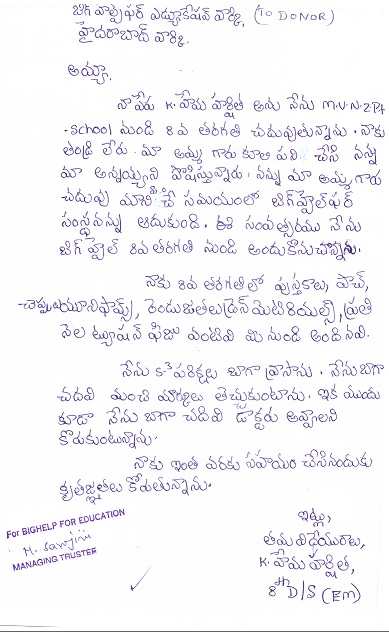 బిగ్ హెల్ప్ ఫర్ ఎడ్యూకేషన్ వార్కి, (TO DONOR)
హైదరాబాద్ వారికి.
అయ్యా,
నా పేరు K. హేమ హర్షిత అను నేను M.V.N.Z.P.H
-school నుండి 8 వ తరగతి చదువుతున్నాను. నాకు
తండ్రి లేరు. మా అమ్మ గారు కూలి పని చేసి నన్ను
మా అన్నయ్యని పోషిస్తున్నారు. నన్ను మా అమ్మ గారు
చదువు మాన్పించే సమయంలో బిగ్ హెల్ప్ ఫర్
సంస్థ నన్ను ఆదుకుంది. ఈ సంవత్సరము నేను
బిగ్ హెల్ప్ 8వ తరగతి నుండి అందుకొనుచున్నాను.
నాకు 8వ తరగతిలో పుస్తకాలు,
రెండుజతలు డ్రెస్ మెటిరియల్స్, ప్రతి
నెల ట్యూషన్ ఫీజు వంటివి మీ నుండి అందినవి.
నేను పరీక్షలు బాగా వ్రాసాను. నేను బాగా
చదివి మంచి మార్కులు తెచ్చుకుంటాను. ఇక ముందు
కూడా నేను బాగా చదివి డాక్టరు అవ్వాలని
కోరుకుంటున్నాను.
నాకు ఇంత వరకు సహాయం చేసినందుకు
కృతజ్ఞతలు కోరుతున్నాను.
ఇట్లు,
తమ విధేయురాలు,
K. హేమ హర్షిత,
8th D/S (EM)
For BIGHELP FOR EDUCATION
M. Sarojini
MANAGING TRUSTEE